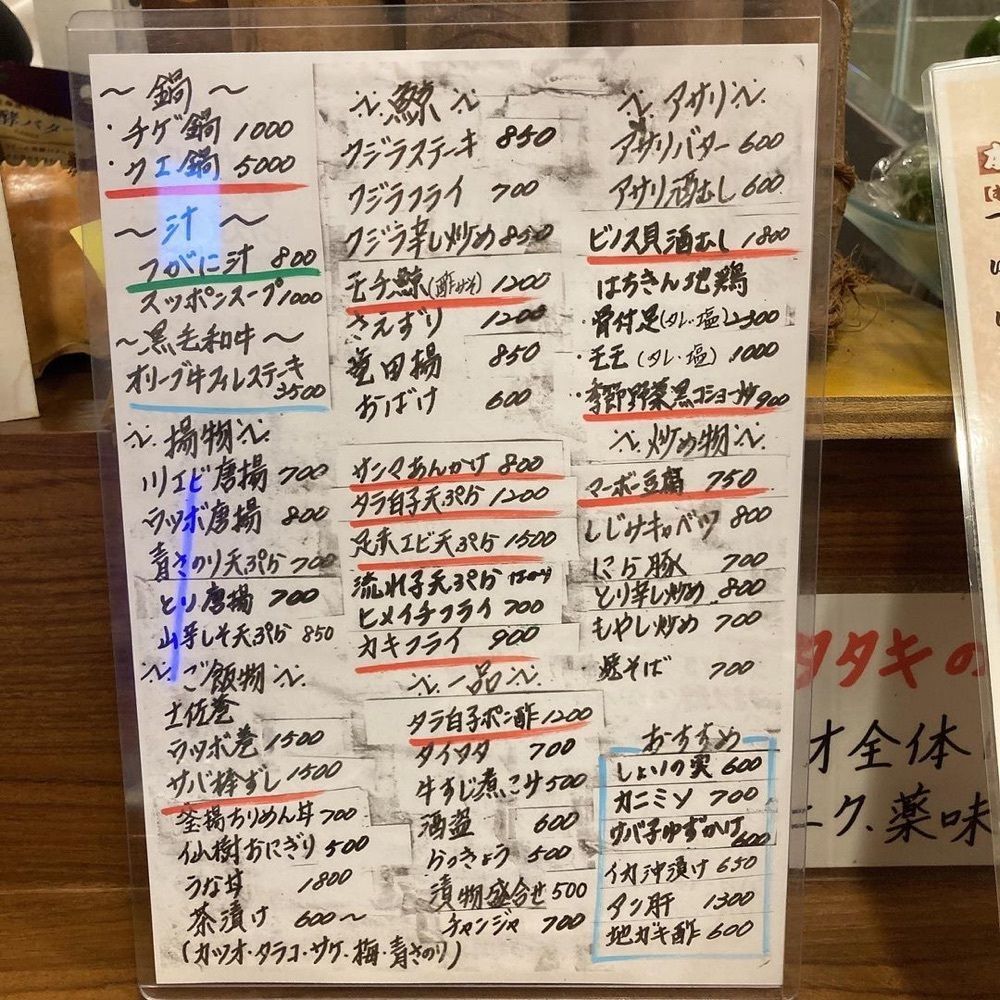 〜鍋〜
・チゲ鍋 1000
・クエ鍋 5000
〜汁〜
つがに汁 800
スッポンスープ 1000
〜黒毛和牛〜
オリーブ牛フィレステーキ
3500
〜揚物〜
川エビ唐揚 700
ウツボ唐揚 800
青さのり天ぷら 700
とり唐揚 700
山芋しそ天ぷら 850
〜ご飯物〜
土佐巻
ウツボ巻 1500
サバ棒ずし 1500
釜揚ちりめん丼 700
仙樹おにぎり 500
うな丼 1800
茶漬け 600〜
(カツオ・タラコ・サケ・梅・青さのり)
〜鯨〜
クジラステーキ 850
クジラフライ 700
クジラ辛し炒め 850
モチ鯨(酢みそ) 1200
さえずり 1200
竜田揚 850
おばけ 600
サンマあんかけ 800
タラ白子天ぷら 1200
足赤エビ天ぷら 1500
流れ子天ぷら
ヒメイチフライ 700
カキフライ 900
〜一品〜
タラ白子ポン酢 1200
タイワタ 700
牛すじ煮こみ 500
酒盗 600
らっきょう 500
漬物盛合せ 500
チャンジャ 700
〜アサリ〜
アサリバター 600
アサリ酒むし 600
ビノス貝酒むし 1800
はちきん地鶏
・骨付足(タレ・塩) 2300
・モモ(タレ・塩) 1000
・季節野菜黒コショー炒 900
〜炒め物〜
マーボー豆腐 750
しじみキャベツ 800
にら豚 700
とり辛し炒め 800
もやし炒め 700
焼そば 700
おすすめ
しょいの実 600
カニミソ 700
サバ子ゆずかけ
600
イカ沖漬け 650
タン肝 1300
地ガキ酢 600
タタキの
オ全体
ニク、薬味